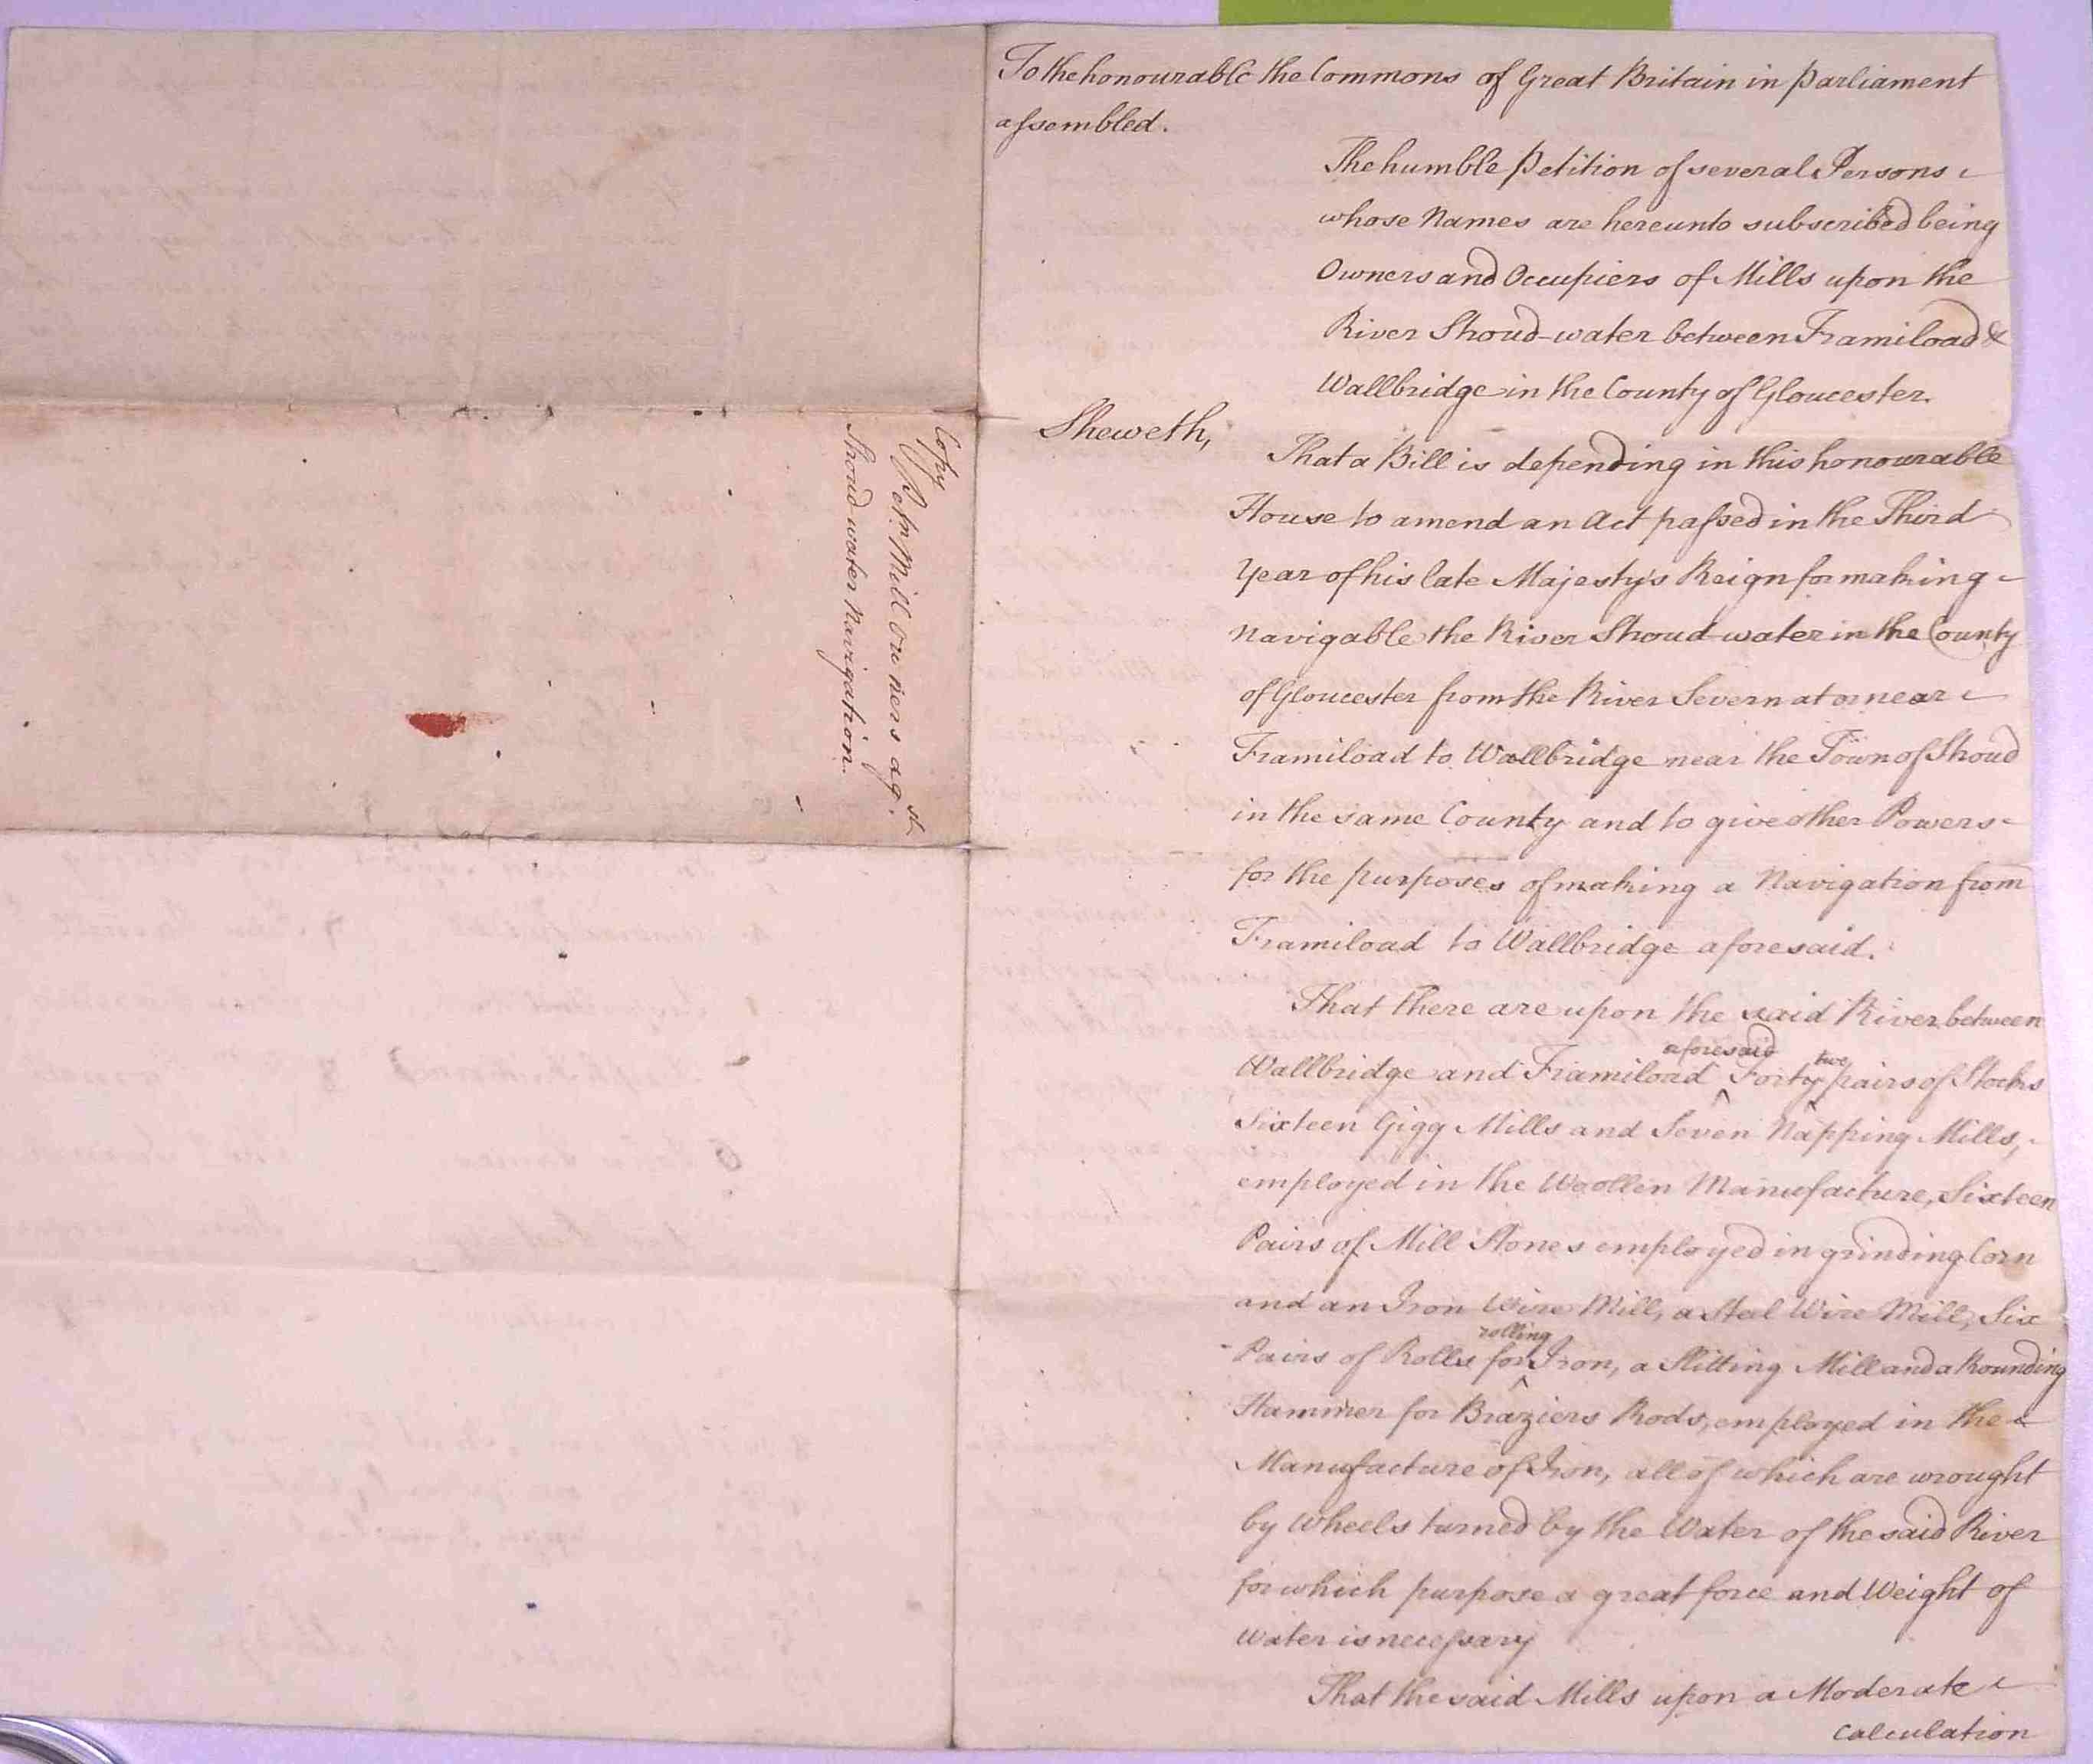 To the honourable the Commons of Great Britain in Parliament
assembled.
The humble Petition of several Persons
whose Names are hereunto subscribed being
Owners and Occupiers of Mills upon the
River Stroud-water between Framiload &
Wallbridge in the County of Gloucester.
Sheweth,
That a Bill is depending in this honourable
House to amend an Act passed in the Third
Year of his late Majesty's Reign for making
navigable the River Stroud-water in the County
of Gloucester from the River Severn at or near
Framiload to Wallbridge near the Town of Stroud
in the same County and to give other Powers
for the purposes of making a Navigation from
Framiload to Wallbridge aforesaid.
That there are upon the said River between
Wallbridge and Framiload aforesaid Forty two pairs of Stocks
Sixteen Gigg Mills and Seven Napping Mills,
employed in the Woollen Manufacture, Sixteen
Pairs of Mill Stones employed in grinding Corn
and an Iron Wire Mill, a Steel Wire Mill, Six
Pairs of Rolls for rolling Iron, a Slitting Mill and a Rounding
Hammer for Braziers Rods, employed in the
Manufacture of Iron, all of which are wrought
by Wheels turned by the Water of the said River
for which purpose a great force and Weight of
Water is necessary
That the said Mills upon a Moderate
Calculation
Copy
Petn Mill owners agst
Stroud water Navigation.